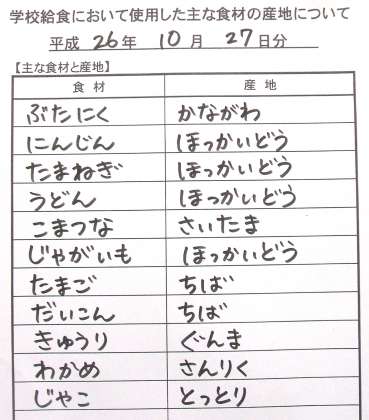 学校給食において使用した主な食材の産地について
平成 26 年 10 月 27 日分
【主な食材と産地】
食材 産地
ぶたにく かながわ
にんじん ほっかいどう
たまねぎ ほっかいどう
うどん ほっかいどう
こまつな さいたま
じゃがいも ほっかいどう
たまご ちば
だいこん ちば
きゅうり ぐんま
わかめ さんりく
じゃこ とっとり